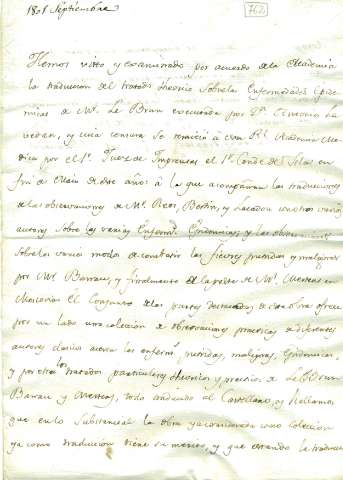 1801 Septiembre
762
Hemos visto y examinado por acuerdo de la Academia
la traducion del tratado theorico sobre las Enfermedades Epide
micas de Mr. Le Brun executada por Dn. Antonio La
vedan, y cuia censura se remitió a esta Rl. Academia Me
dica por el Sr. Juez de Imprentas el Sr. Conde de Isla en
fin de Maio de este año: a la que acompañan las traducciones
de las observaciones de Mr. Bertin, y con otros varios
autores sobre las varias Enfermds. Epidemicas, y las observaciones
sobre los varios modos de combatir las fiebres putridas y malignas
por Mr. Barrau, y finalmente de la de Mr. Mertens en
El conjunto de las partes de esta obra ofrece
por un lado una coleccion de observaciones practicas de diferentes
autores clasicos acerca las enferms. putridas, malignas, Epidemicas,
y por otro los tratados particulares theoricos y practicos de Le Brun
Barrau y Mertens, todo traducido al Castellano, y hallamos
que en lo substancial la obra ya considerada como coleccion
ya como traducion tiene su merito, y que estando la traducion